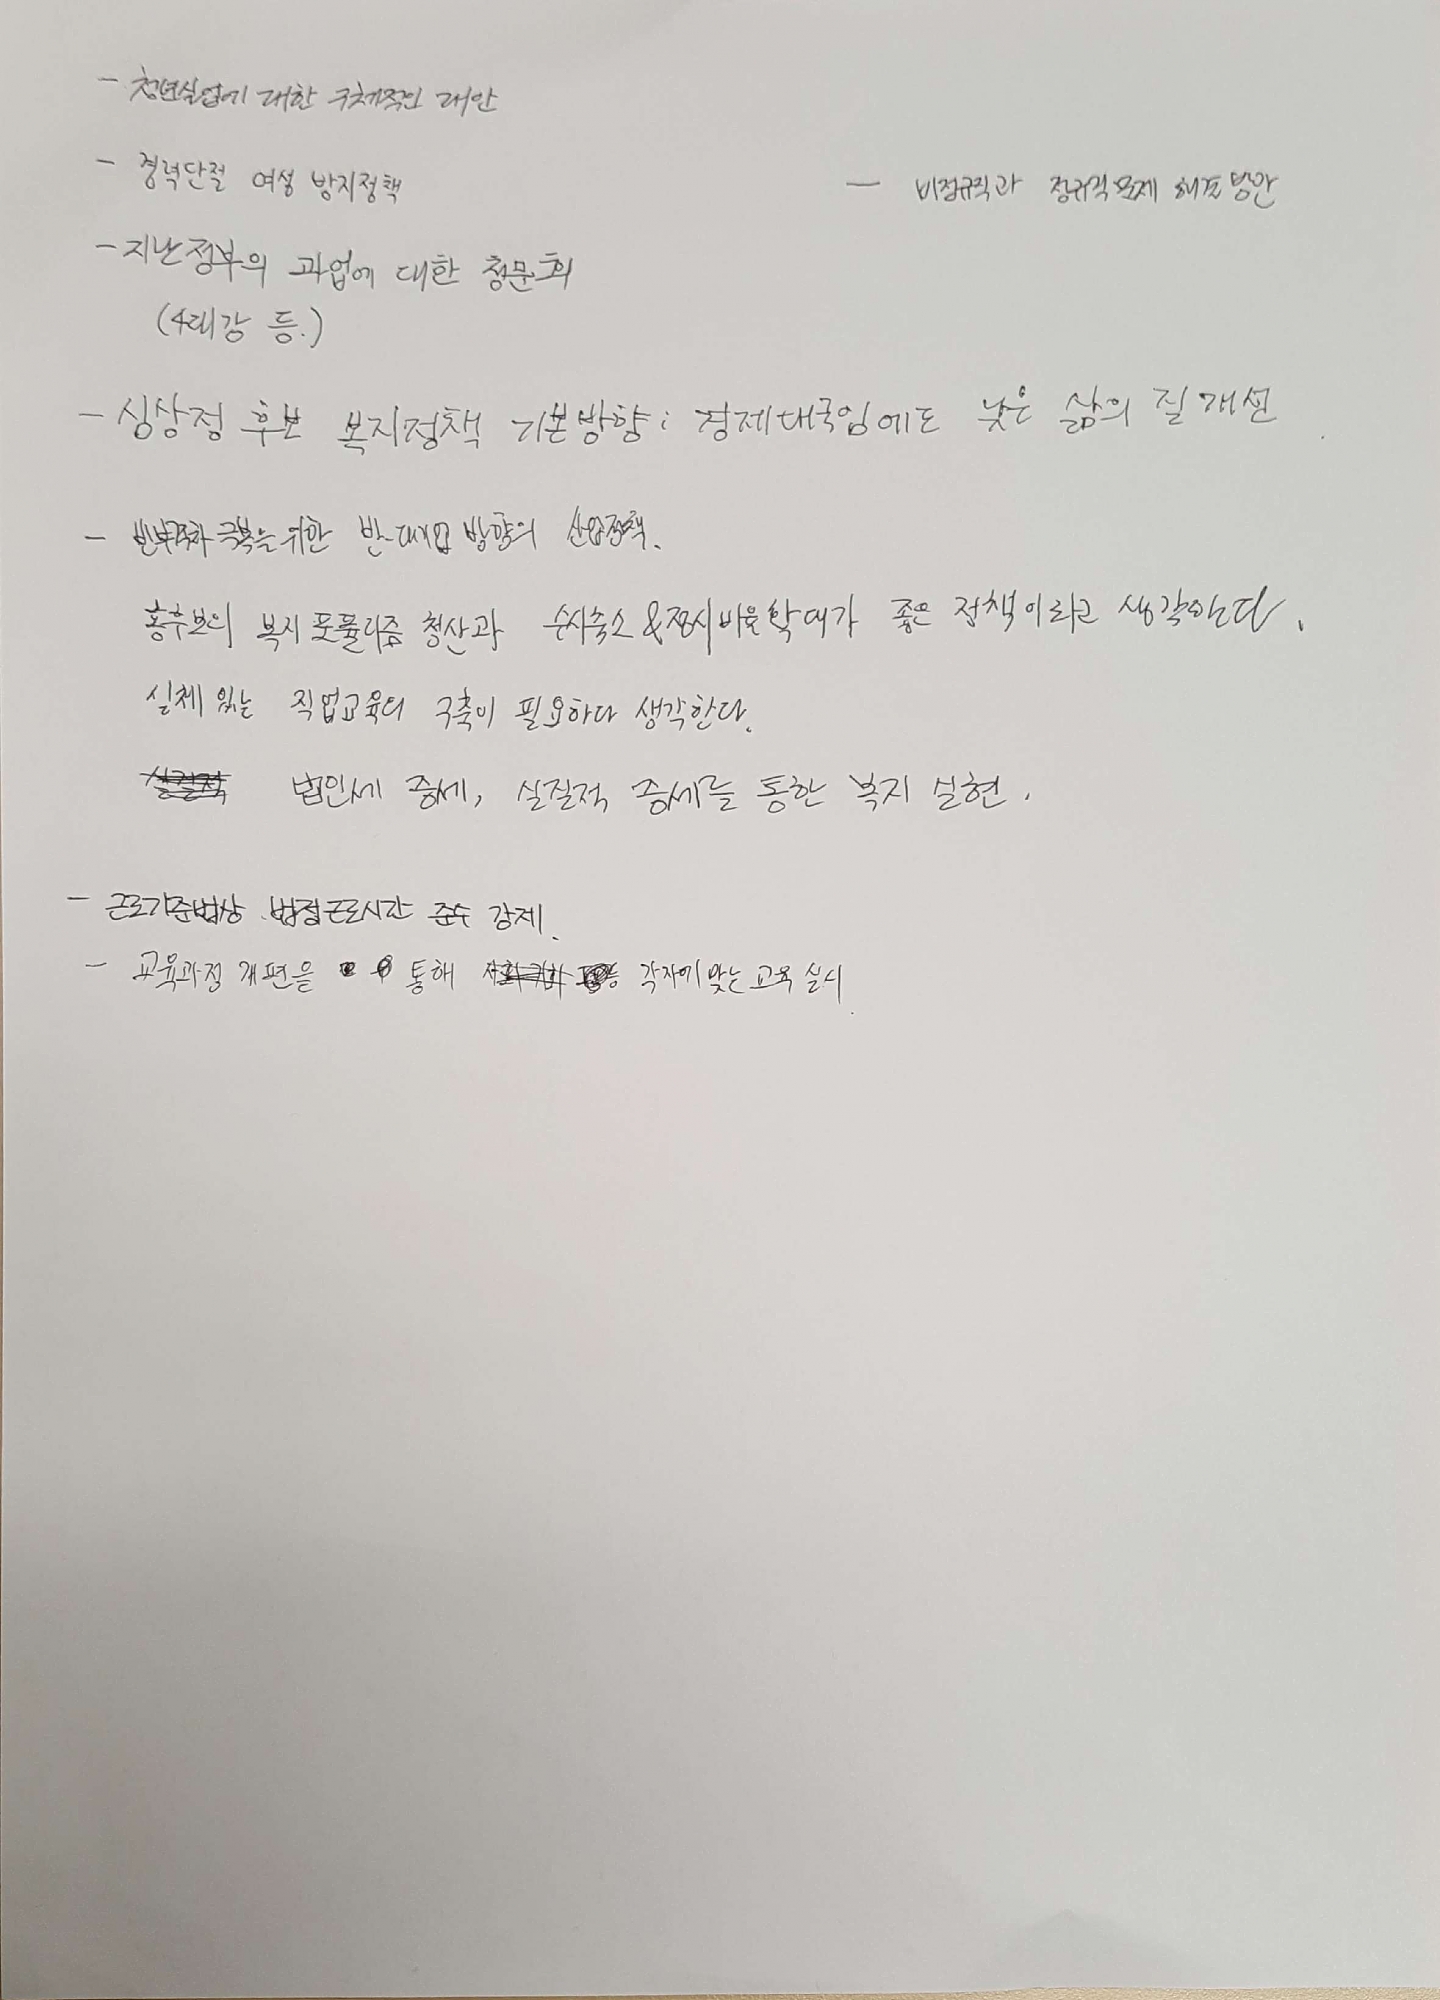 - 청년실업에 대한 구체적인 대안
- 경력단절 여성 방지정책
- 비정규직과 정규직문제 해소방안
- 지난정부의 과업에 대한 청문회
(4대강 등.)
- 심상정 후보 복지정책 기본방향: 경제대국임에도 낮은 삶의 질 개선
- 빈부격차 극복을 위한 반-대기업 방향의 산업정책.
홍후보의 복지 포퓰리즘 청산과 수시축소&정시비율확대가 좋은 정책이라고 생각한다.
실체 있는 직업교육의 구축이 필요하다 생각한다.
법인세 증세, 실질적 증세를 통한 복지 실현.
- 근로기준법상 법정근로시간 준수 강제.
- 교육과정 개편을 통해 각자에 맞는 교육 실시.